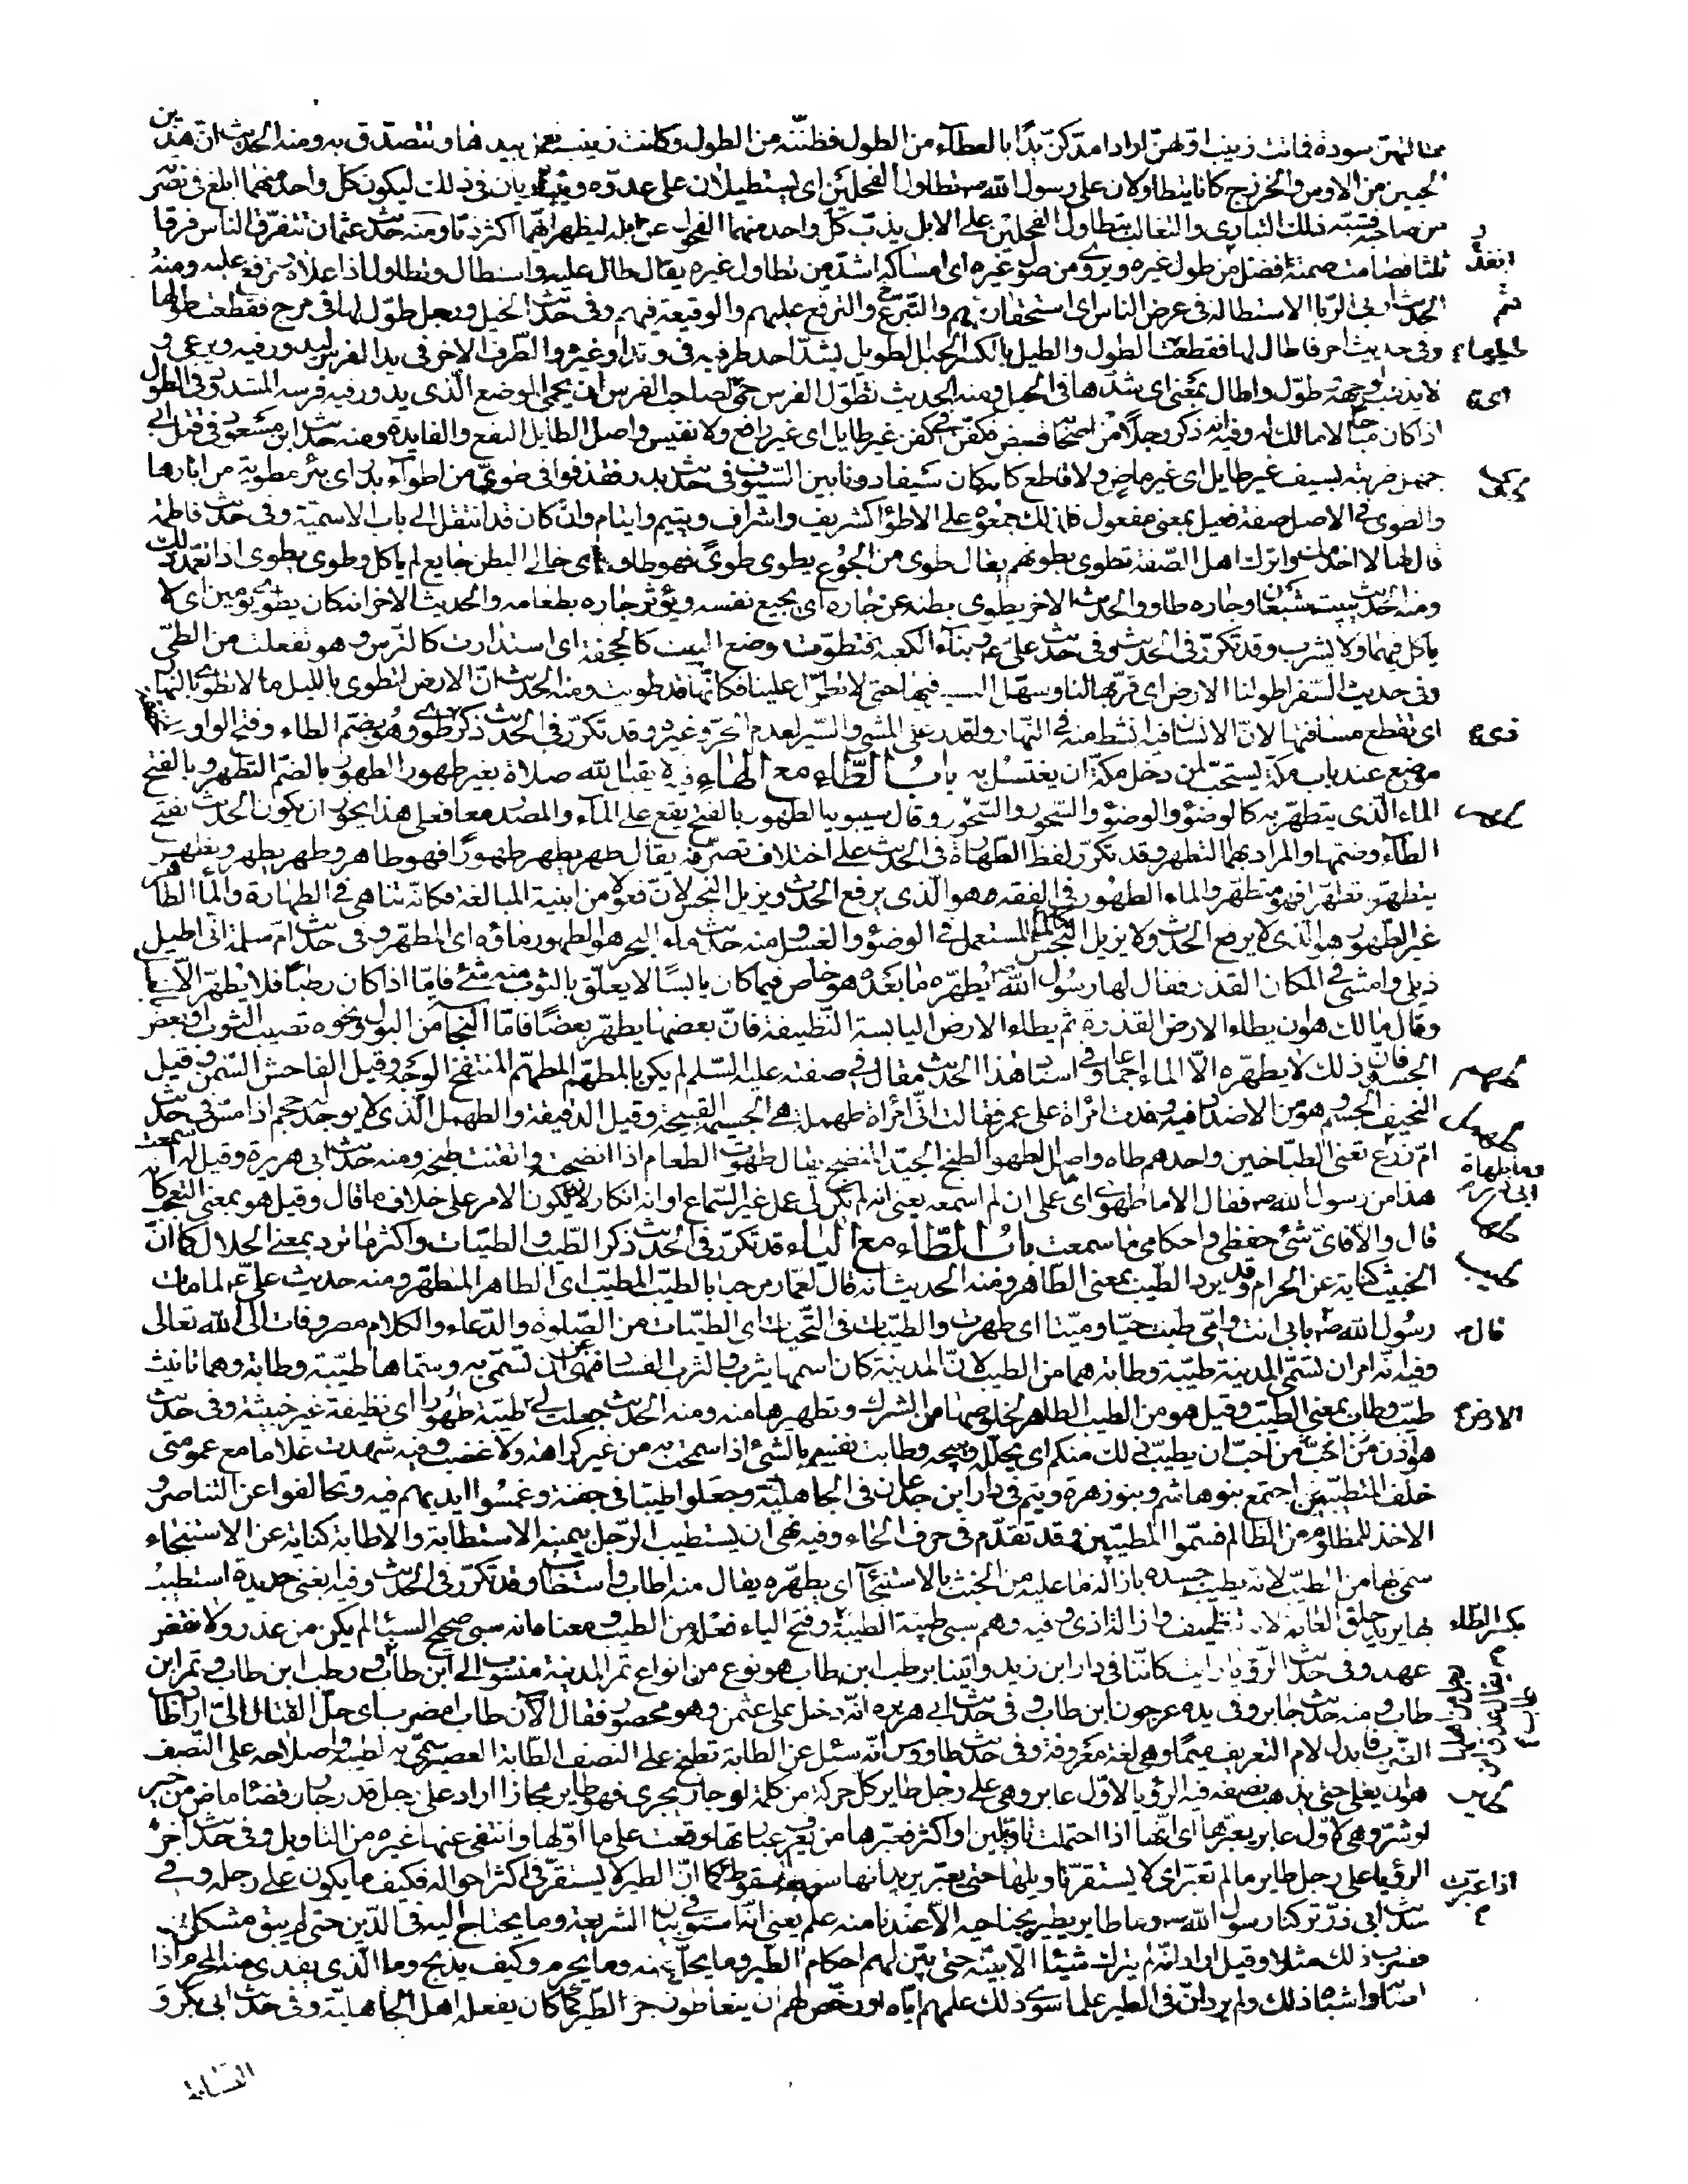 فطالتهن سودة فماتت زينب اولهن اراد امدكن يدا بالعطاء من الطول فظننه من الطول وكانت زينب تعمل بيدها وتتصدق به ومنه الحديث ان هذين
الحيين من الاوس والخزرج كانا يتطاولان على رسول الله ص تطاول الفحلين اى يستطيلان على عدوه ويتباريان فى ذلك ليكون كل واحد منهما ابلغ فى نصر
من صاحبه فشبه ذلك التبارى والتغالب بتطاول الفحلين على الابل يذب كل واحد منهما الفحول عن ابله ليظهر ايهما اكثر ذبا ومنه حديث عثمان فتفرق الناس فرقا
ثلثا فصامت صمته انفذ من طول غيره ويروى من صول غيره اى امساكه اشد من تطاول غيره يقال طال عليه واستطال وتطاول اذا علاه وترفع عليه ومنه
الحديث اربى الربا الاستطالة فى عرض الناس اى استحقارهم والترفع عليهم والوقيعة فيهم وفى حديث الخيل ورجل طول لها فى مرج فقطعت طولها
وفى حديث اخر فاطال لها فقطعت طيلها الطول والطيل بالكسر الحبل الطويل يشد احد طرفيه فى وتد او غيره والطرف الاخر فى يد الفرس ليدور فيه ويرعى و
لا يذهب لوجهه وطول واطال بمعنى اى شدها فى الحبل ومنه الحديث لطول الفرس حمى اى لصاحب الفرس ان يحمى الموضع الذى يدور فيه فرسه المشدود فى الطول
اذا كان مباحا لا مالك له وفيه انه ذكر رجلا من اصحابه قبض فكفن فى كفن غير طايل اى غير رافع ولا نفيس واصل الطايل النفع والفايدة ومنه حديث ابن مسعود فى قتل ابى
جهل ضربته بسيف غير طايل اى غير ماض ولا قاطع كانه كان سيفا دونا بين السيوف فى حديث بدر فقذفوا فى طوى من اطواء بدر اى بئر مطوية من ابارها
والطوى فى الاصل صفة فعيل بمعنى مفعول فلذلك جمعوه على الاطواء كشريف واشراف ويتيم وايتام وان كان قد انتقل الى باب الاسمية وفى حديث فاطمة
قال لها لا اخدمك واترك اهل الصفة تطوى بطونهم يقال طوى من الجوع يطوى طوى فهو طاو اى خالى البطن جايع لم ياكل وطوى يطوى اذا تعمد ذلك
ومنه الحديث يبيت شبعان وجاره طاو والحديث الاخر يطوى بطنه عن جاره اى يجيع نفسه ويؤثر جاره بطعامه والحديث الاخر انه كان يطوى يومين اى لا
ياكل فيهما ولا يشرب وقد تكرر فى الحديث وفى حديث على ع وبناء الكعبة فتطوت موضع البيت كالحجفة اى استدارت كالترس وهو تفعلت من الطى
وفى حديث السفر اطو لنا الارض اى قربها لنا وسهل السير فيها حتى لا تطول علينا فكانها قد طويت ومنه الحديث ان الارض لتطوى بالليل ما لا تطوى بالنهار
اى تقطع مسافتها لان الانسان فيه انشط منه فى النهار واقدر على المشى والسير لعدم الحر وغيره وقد تكرر فى الحديث ذكر ذى طوى وهو بضم الطاء وفتح الواو
موضع عند باب مكة يستحب لمن دخل مكة ان يغتسل به باب الطاء مع الهاء فيه لا يقبل الله صلاة بغير طهور الطهور بالضم التطهر وبالفتح
الماء الذى يتطهر به كالوضوء والوضوء والسحور والسحور وقال سيبويه الطهور بالفتح يقع على الماء والمصدر معا فعلى هذا يجوز ان يكون الحديث بفتح
الطاء وضمها والمراد بهما التطهر وقد تكرر لفظ الطهارة فى الحديث على اختلاف تصرفه يقال طهر يطهر طهورا فهو طاهر وطهر يطهر وتطهر
يتطهر تطهرا فهو متطهر والماء الطهور فى الفقه هو الذى يرفع الحدث ويزيل النجس لان فعولا من ابنية المبالغة فكانه تناهى فى الطهارة والماء الطاهر
غير الطهور هو الذى لا يرفع الحدث ولا يزيل النجس كالمستعمل فى الوضوء والغسل ومنه حديث ماء البحر هو الطهور ماؤه اى المطهر وفى حديث ام سلمة انى اطيل
ذيلى وامشى فى المكان القذر فقال لها رسول الله ص يطهره ما بعده هو خاص فيما كان يابسا لا يعلق بالثوب منه شئ فاما اذا كان رطبا فلا يطهر الا بالماء
وقال مالك هو ان يطاء الارض القذرة ثم يطاء الارض اليابسة النظيفة فان بعضها يطهر بعضا فاما النجاسة من البول ونحوه تصيب الثوب او بعض
الجسد فان ذلك لا يطهره الا الماء اجماعا وفى اسناد هذا الحديث مقال فى صفته عليه السلم لم يكن بالمطهم المطهم المنتفخ الوجه وقيل الفاحش السمن وقيل
النحيف الجسم وهو من الاضداد فيه وقفت امرأة على عمر فقالت انى امرأة طهملة هى الجسيمة القبيحة وقيل الدقيقة والطهمل الذى لا يوجد له حجم اذا مس فى حديث
ام زرع تعنى الطباخين واحدهم طاه واصل الطهو الطبخ الجيد المنضج يقال طهوت الطعام اذا انضجته واتقنت طبخه ومنه حديث ابى هريرة وقيل له اسمعت
هذا من رسول الله ص فقال الا ما طهوى اى ما عملى ان لم اسمعه يعنى انه لم يكن لى عمل غير السماع او انه انكار لان يكون الامر على خلاف ما قال وقيل هو بمعنى التعجب كانه
قال والا فاى شئ حفظى واحكامى ما سمعت باب الطاء مع الياء قد تكرر فى الحديث ذكر الطيب والطيبات واكثر ما ترد بمعنى الحلال كما ان
الخبيث كناية عن الحرام وقد يرد الطيب بمعنى الطاهر ومنه الحديث انه قال لعمار مرحبا بالطيب المطيب اى الطاهر المطهر ومنه حديث على ع لما مات
رسول الله ص بابى انت وامى طبت حيا وميتا اى طهرت والطيبات فى التحيات اى الطيبات من الصلوة والدعاء والكلام مصروفات الى الله تعالى
وفيه انه امر ان تسمى المدينة طيبة وطابة هما من الطيب لان المدينة كان اسمها يثرب والثرب الفساد فنهى ان تسمى به وسماها طيبة وطابة وهما تانيث
طيب وطاب بمعنى الطيب وقيل هو من الطيب الطاهر لخلوصها من الشرك وتطهيرها منه ومنه الحديث جعلت لى الارض طيبة طهورا اى نظيفة غير خبيثة وفى حديث
هوازن من احب من احب ان يطيب ذلك منكم اى يحلله ويبيحه وطابت نفسه بالشئ اذا سمحت به من غير كراهة ولا غضب وفيه شهدت غلاما مع عمومتى
حلف المطيبين اجتمع بنو هاشم وبنو زهرة وتيم فى دار ابن جدعان فى الجاهلية وجعلوا طيبا فى جفنة وغمسوا ايديهم فيه وتحالفوا على التناصر و
الاخذ للمظلوم من الظالم فسموا المطيبين وقد تقدم فى حرف الحاء وفيه نهى ان يستطيب الرجل بيمينه الاستطابة والاطابة كناية عن الاستنجاء
سمى بها من الطيب لانه يطيب جسده بازالة ما عليه من الخبث بالاستنجاء اى يطهره يقال منه اطاب واستطاب وقد تكرر فى الحديث وفيه ابغنى حديدة استطيب
بها يريد حلق العانة لانه تنظيف وازالة اذى وفيه وهم سبى طيبة الطيبة وفتح الياء فعلة من الطيب ومعناه انه سبى صحيح السباء لم يكن من غدر ولا نقض
عهد وفى حديث الرؤيا رايت كاننا فى دار ابن زيد واتينا برطب ابن طاب هو نوع من انواع تمر المدينة منسوب الى ابن طاب ورطب ابن طاب وتمر ابن
طاب ومنه حديث جابر وفى يده عرجون ابن طاب وفى حديث ابى هريرة انه دخل على عثمن وهو محصور فقال الان طاب امضرب اى حل القتال اراد طاب
الضرب فابدل لام التعريف ميما وهى لغة معروفة وفى حديث طاووس انه سئل عن الطابة تطبخ على النصف الطابة العصير سمى به لطيبه واصلاحه على النصف
هو ان يغلى حتى يذهب نصفه فيه الرؤيا لاول عابر وهى على رجل طاير كل حركة من كلمة او جار يجرى فهو طاير مجازا اراد على رجل قدر جار وقضاء ماض من خير
او شر وهى لاول عابر يعبرها اى انها اذا احتملت تاويلين او اكثر فعبرها من يعرف عباراتها وقعت على ما اولها وانتفى عنها غيره من التاويل وفى حديث اخر
الرؤيا على رجل طاير ما لم تعبر اى لا يستقر تاويلها حتى يعبر يريد انها سريعة السقوط اذا عبرت كما ان الطير لا يستقر فى اكثر احواله فكيف ما يكون على رجله وفى
حديث ابى ذر تركنا رسول الله ص وما طاير يطير بجناحيه الا عندنا منه علم يعنى انه استوفى بيان الشريعة وما يحتاج اليه فى الدين حتى لم يبق مشكل
فضرب ذلك مثلا وقيل اراد انه لم يترك شيئا الا بينه حتى بين لهم احكام الطير وما يحل منه وما يحرم وكيف يذبح وما الذى يفدى منه المحرم اذا
اصابه واشباه ذلك ولم يرد ان فى الطير علما سوى ذلك علمهم اياه او رخص لهم ان يتعاطوا زجر الطير كما كان يفعله اهل الجاهلية وفى حديث ابى بكر و
النسابة